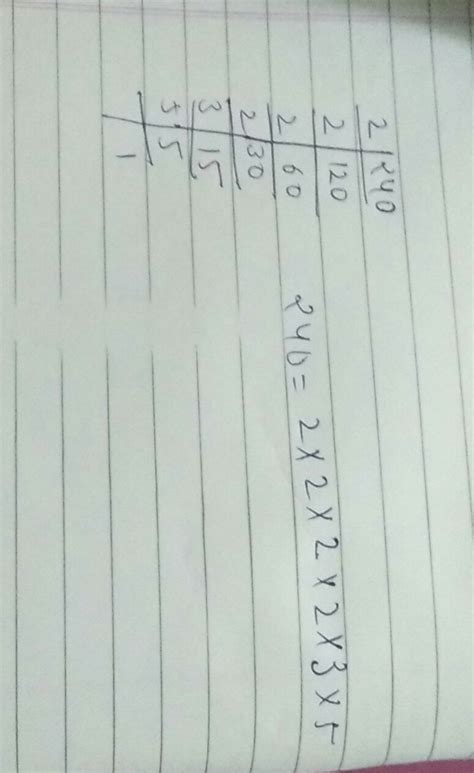 2 240
2 120
2 60
2 30
3 15
5 5
1
240 = 2 x 2 x 2 x 2 x 3 x 5